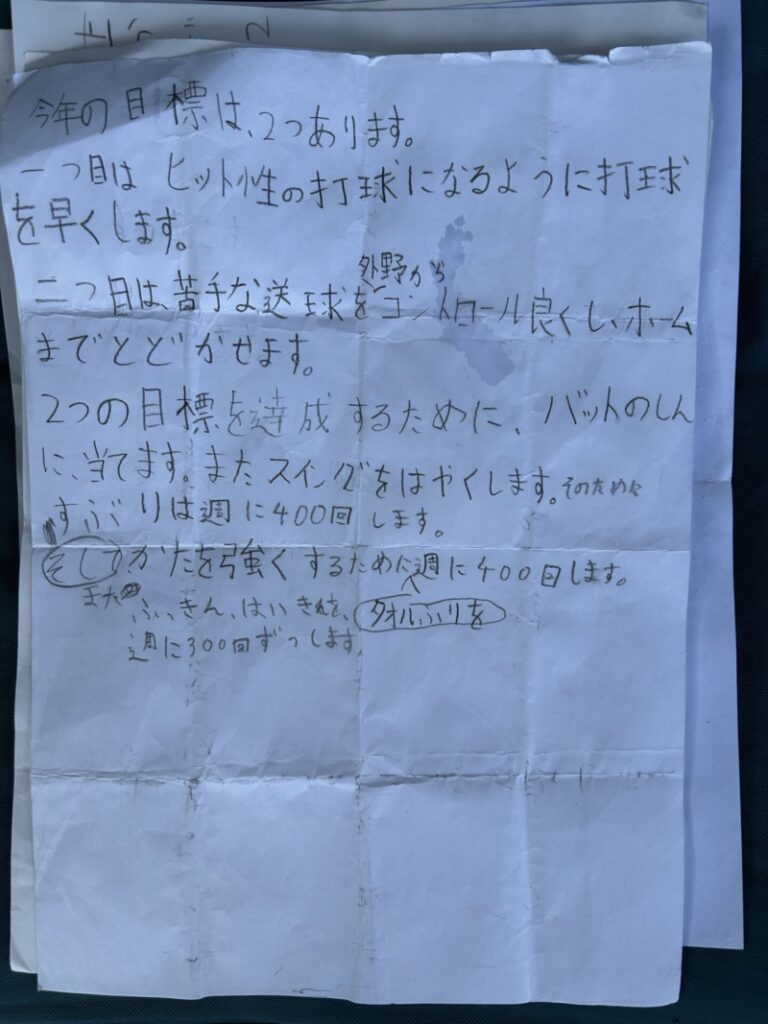 今年の目標は、2つあります。
一つ目は ヒット性の打球になるように打球
を早くします。
外野から
二つ目は、苦手な送球をコントロール良くし、ホーム
までとどかせます。
2つの目標を達成するために、バットのしん
に、当てます。またスイングをはやくします。そのために
すぶりは週に400回します。
そしてかたを強くするために週に400回します。
また ふっきん、はいきんを、 タオルふりを
週に300回ずつします